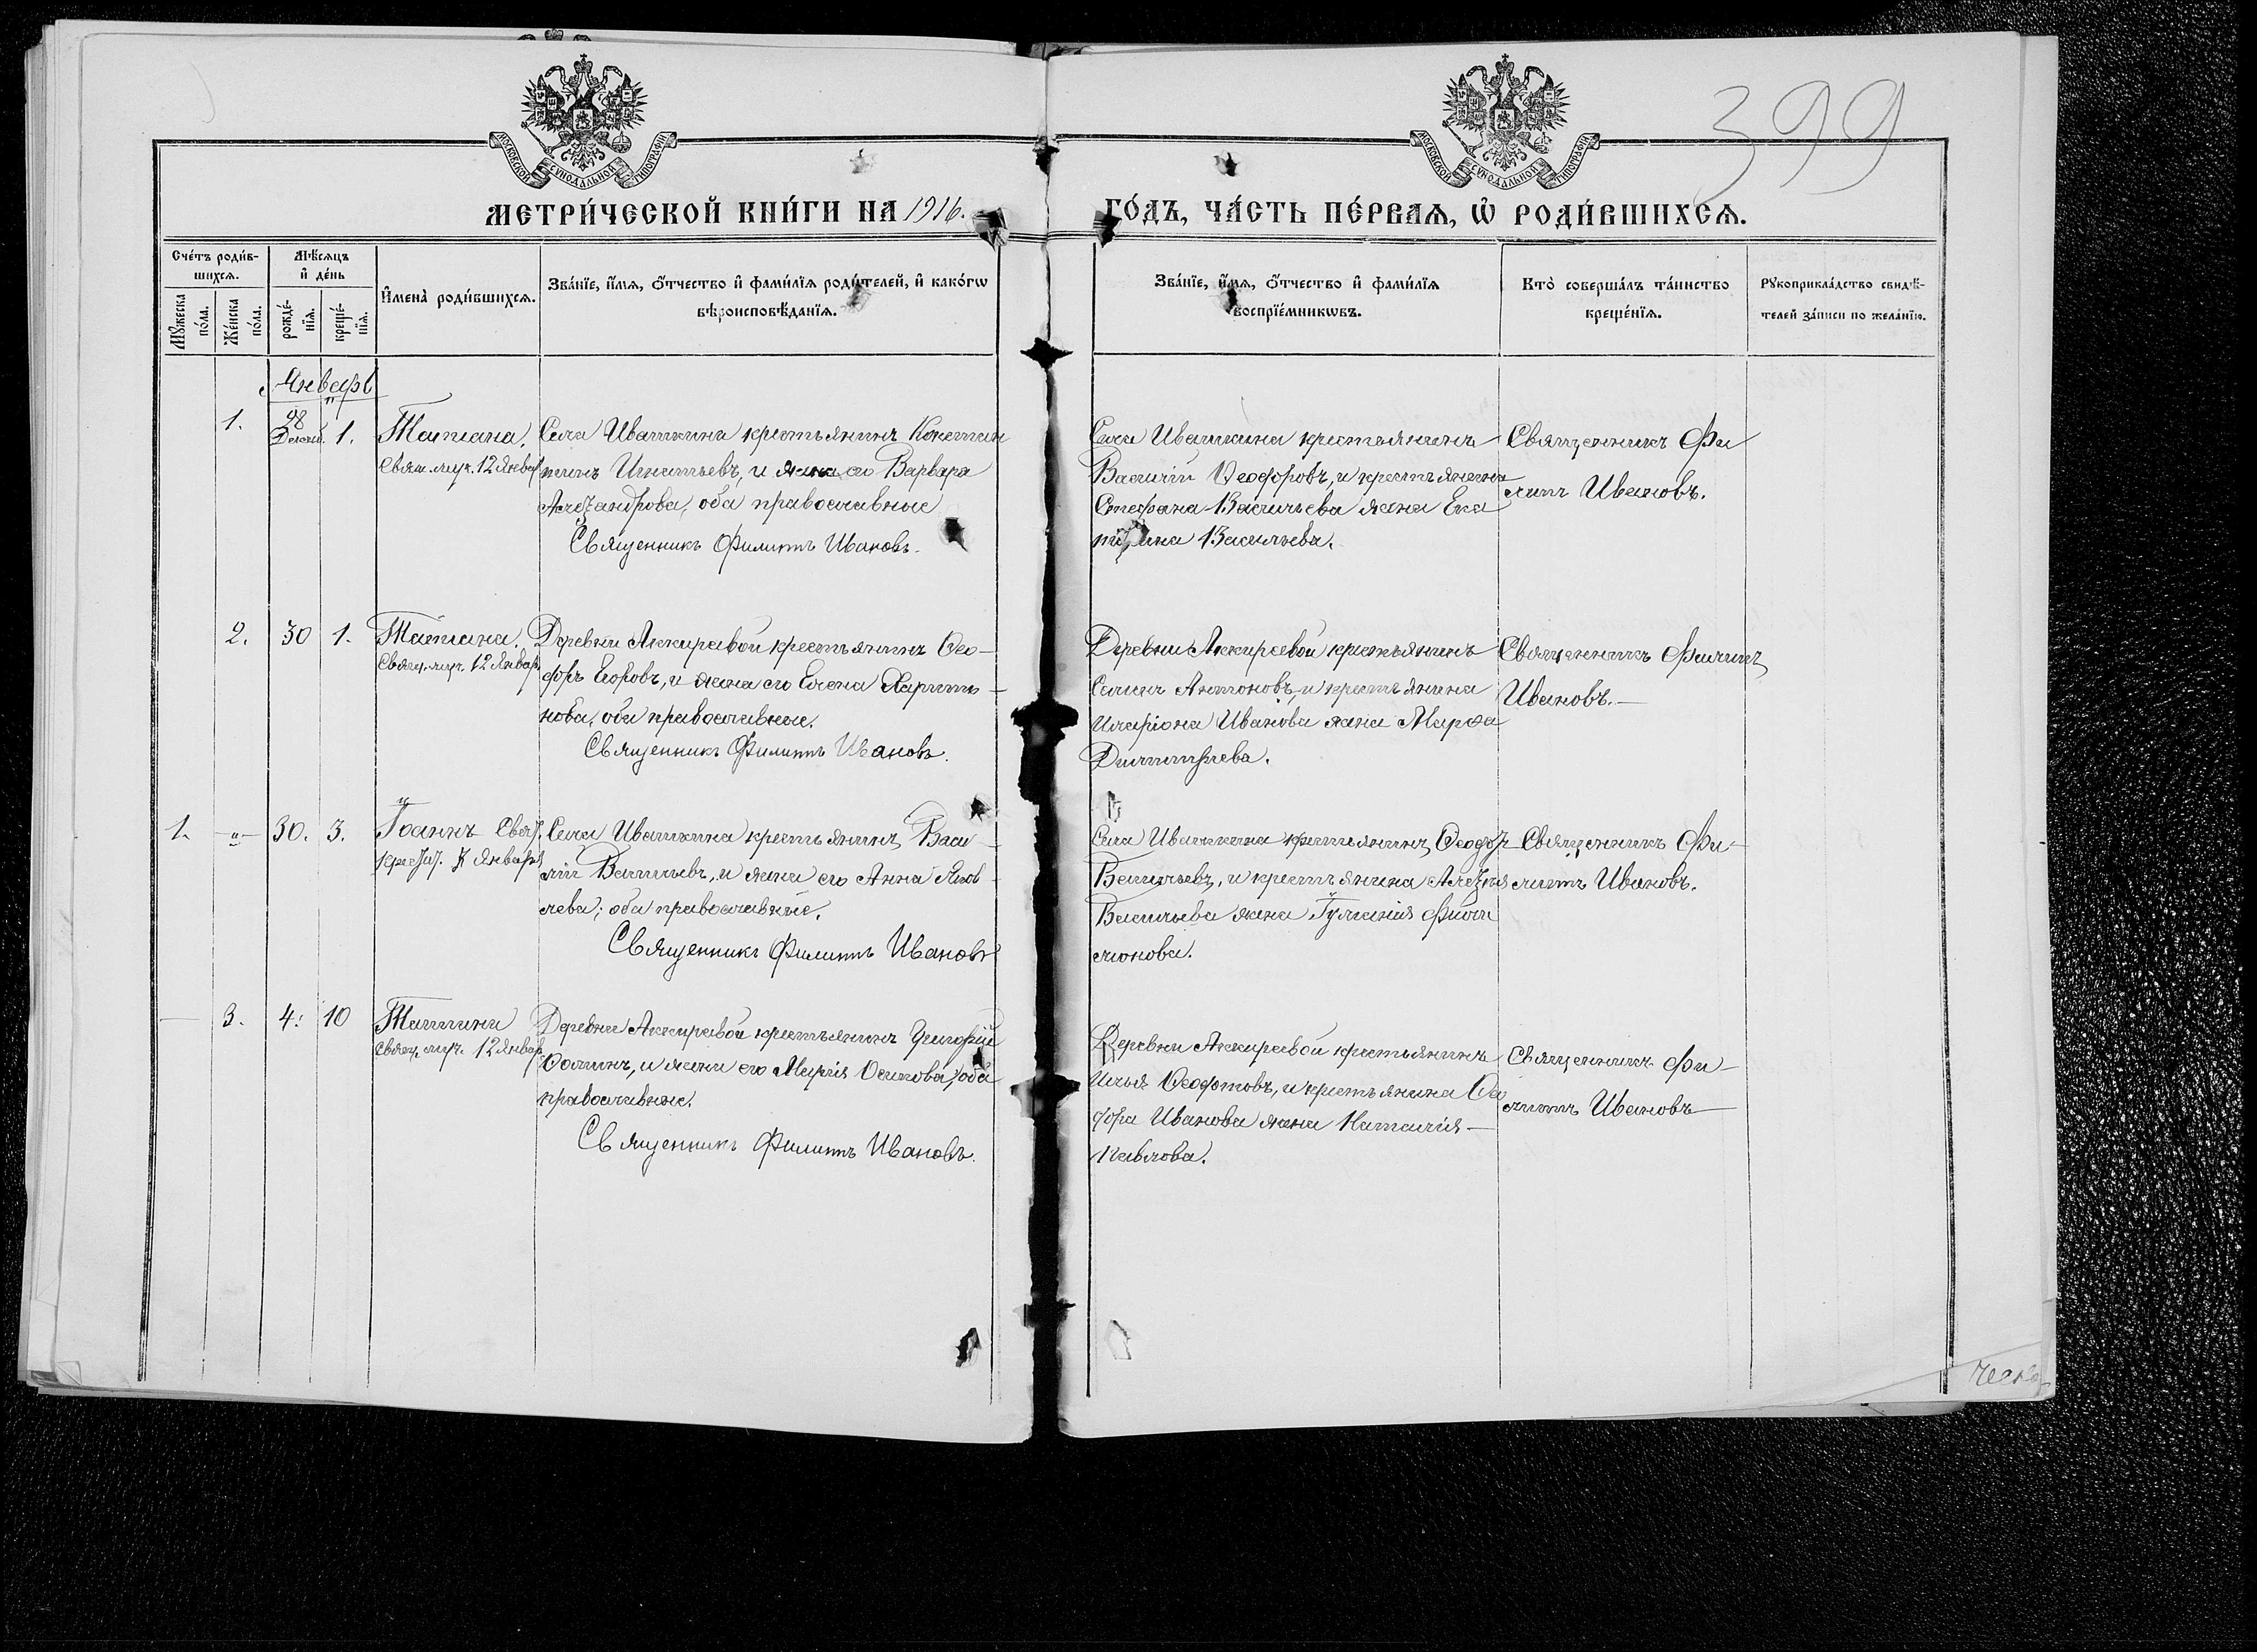 399
МОСКОВСКОЙ СѴНОДАЛЬНОЙ ТИПОГРАФІИ
МОСКОВСКОЙ СѴНОДАЛЬНОЙ ТИПОГРАФІИ
МЕТРИ́ЧЕСКОЙ КНИ́ГИ НА 1916. ГО́ДЪ, ЧА́СТЬ ПЕ́РВАѦ, Ѡ҆ РОДИ́ВШИХСѦ.
Сче́тъ роди́в-
шихсѧ.
Мѣ́сѧцъ
и҆ де́нь
Мꙋжеска
по́ла.
Же́нска
по́ла.
рожде́-
нїѧ.
креще́-
нїѧ.
И҆мена̀ роди́вшихсѧ.
Зва́нїе, и҆́мѧ, ѻ҆́тчество и҆ фами́лїѧ роди́телей, и҆ како́гѡ
вѣроисповѣ́данїѧ.
Зва́нїе, и҆́мѧ, ѻ҆́тчество и҆ фами́лїѧ
воспрїе́мникѡвъ.
Кто̀ соверша́лъ та́инство
креще́нїѧ.
Рꙋкоприкла́дство свидѣ́-
телей за́писи по жела́нїю.
Январь
1. 28 Декаб. 1. Татіана.
Свят. муч. 12 Январ
Села Ивашкина крестьянинъ Констан
тинъ Игнатьевъ, и жена его Варвара
Александрова, оба православные
Священникъ Филиппъ Ивановъ.
Села Ивашкина крестьянинъ
Василій Ѳеодоровъ, и крестьянина
Стефана Васильева жена Ека
терина Васильева.
Священникъ Фи
липпъ Ивановъ.
2. 30 1. Татіана.
Свят. муч. 12 Январ
Деревни Аккиревой крестьянинъ Ѳео-
доръ Егоровъ, и жена его Елена Харито-
нова, оба православные.
Священникъ Филиппъ Ивановъ.
Деревни Аккиревой крестьянинъ
Антоновъ, и крестьянина
Иларіона Иванова жена Марѳа
Димитріева.
Священникъ Филиппъ
Ивановъ.
1. -"- 30. 3. Іоаннъ Свят.
7 Января
Села Ивашкина крестьянинъ Васи-
лій Васильевъ, и жена его Анна Яков-
лева; оба православные.
Священникъ Филиппъ Ивановъ
Села Ивашкина крестьянинъ Ѳеодоръ
Васильевъ, и крестьянина Алексѣя
Васильева жена Іуліанія Фила
монова.
Священникъ Фи-
липпъ Ивановъ.
3. 4. 10 Татіана
Свят. муч. 12 Январ.
Деревни Аккиревой крестьянинъ Григорій
и жена его Марія Осипова, оба
православные.
Священникъ Филиппъ Ивановъ.
Деревни Аккиревой крестьянинъ
Илья и крестьянина Ѳео
дора Иванова жена Наталія
Павлова.
Священникъ Фи-
липпъ Ивановъ